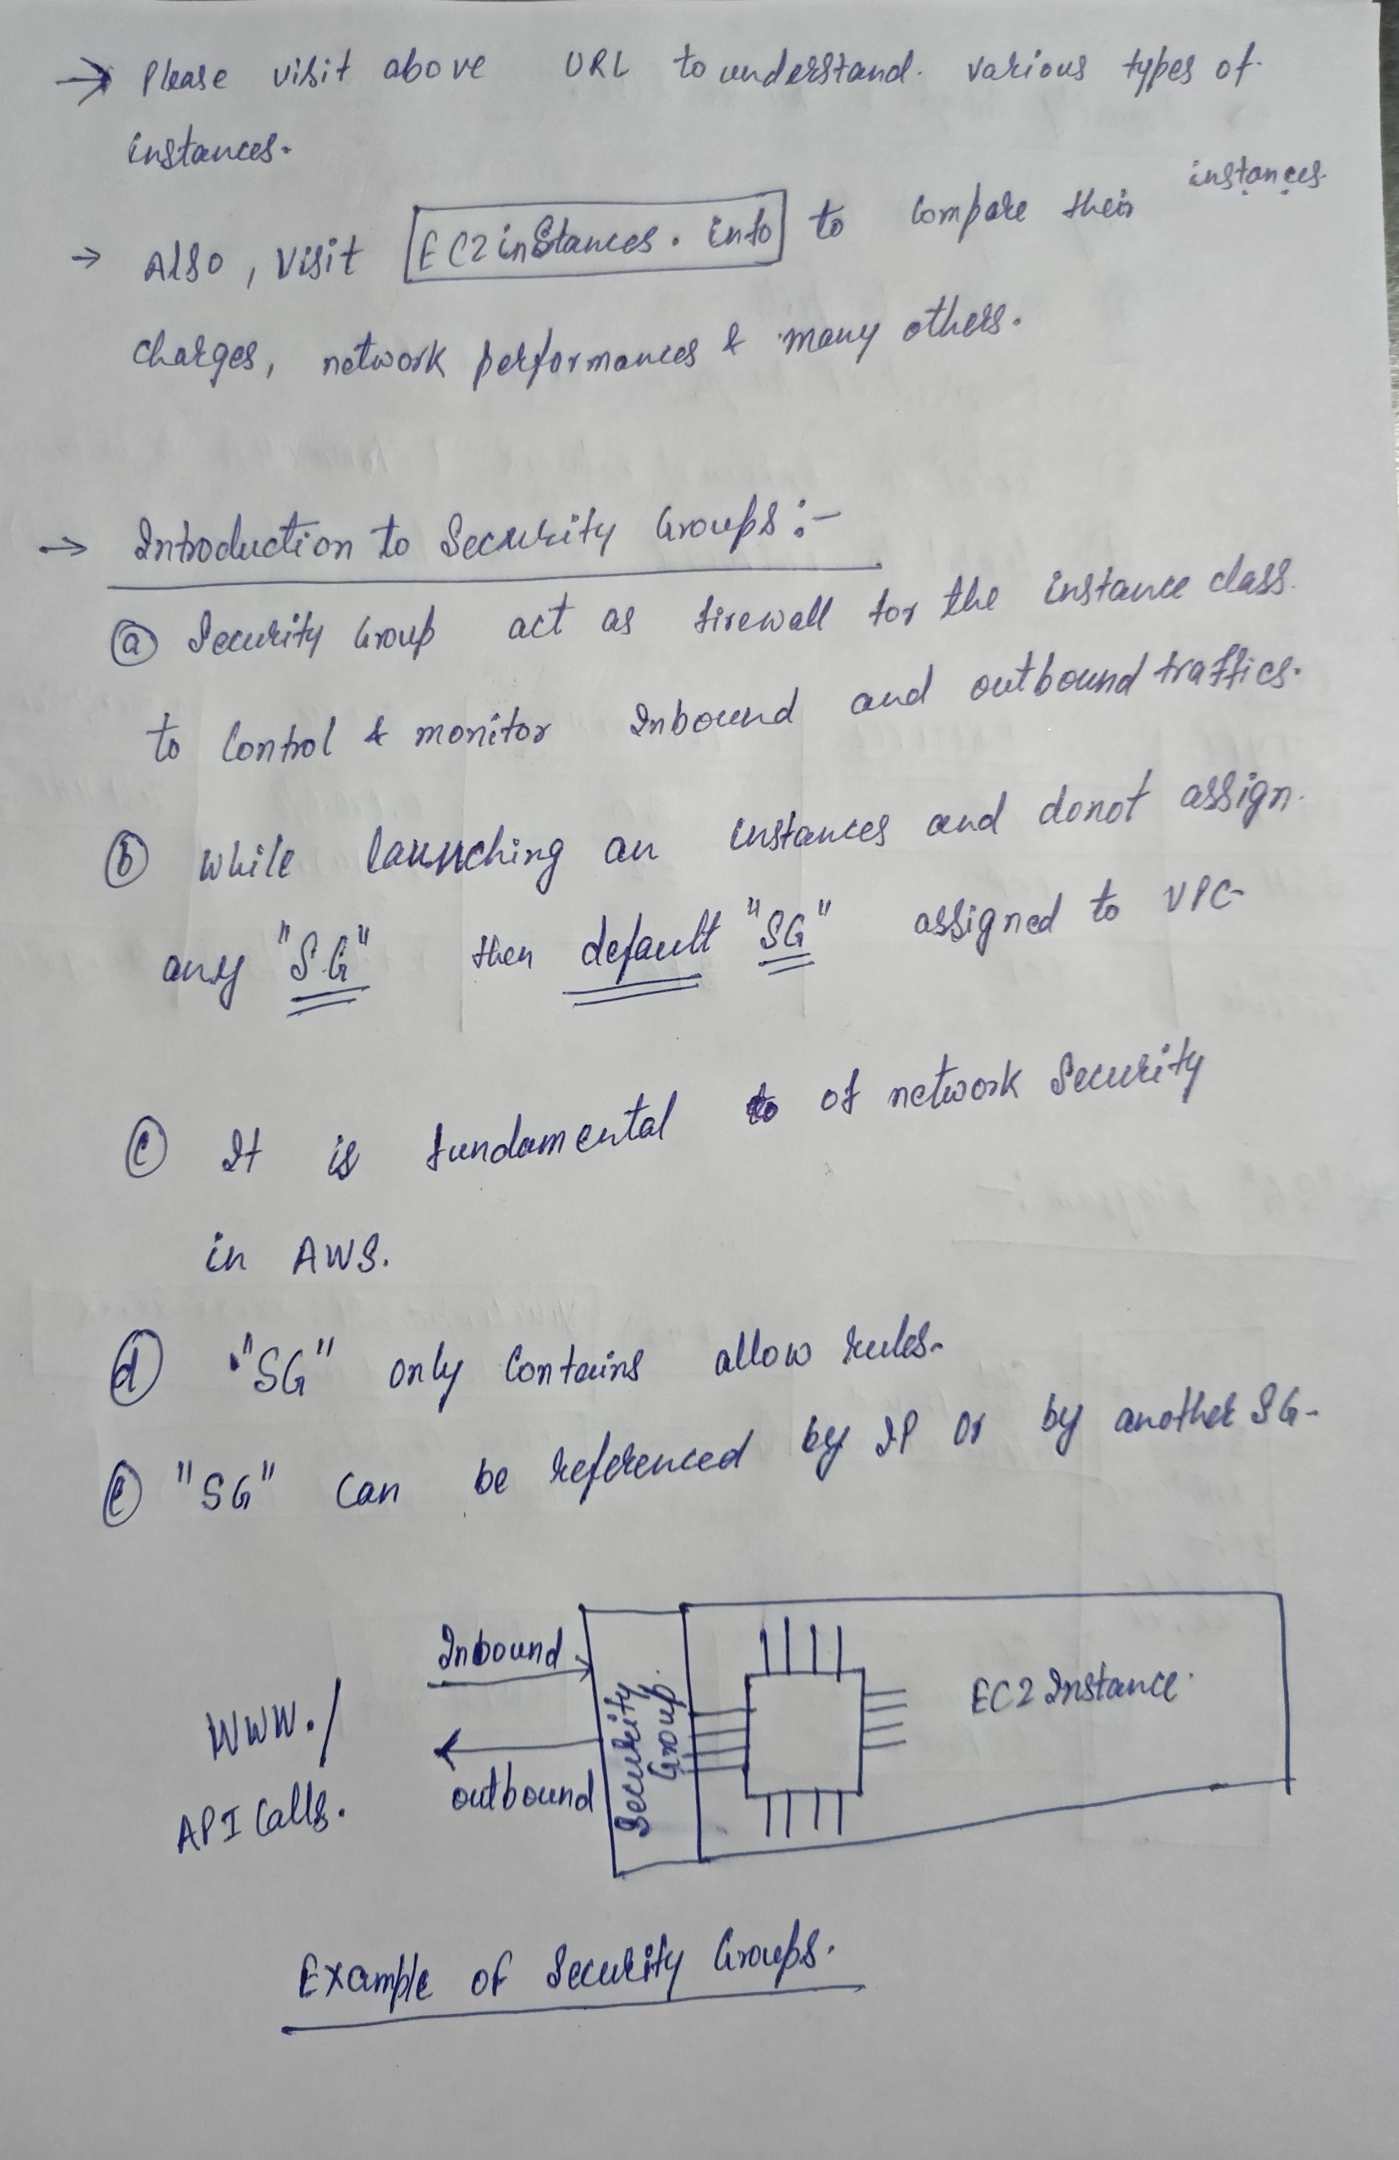 → Please visit above URL to understand. various types of
instances.
→ Also, visit EC2instances.info to compare their instances
charges, network performances & many others.
→ Introduction to Security Groups:-
(a) Security Group act as firewall for the instance class.
to Control & monitor Inbound and outbound traffics.
(b) While launching an instances and donot assign.
any "SG" then default "SG" assigned to VPC
(c) It is fundamental of network Security
in AWS.
(d) "SG" only Contains allow rules.
(e) "SG" Can be referenced by IP or by another SG.
Inbound
WWW./
API Calls.
outbound
Security
Group.
EC2 Instance.
Example of Security Groups.